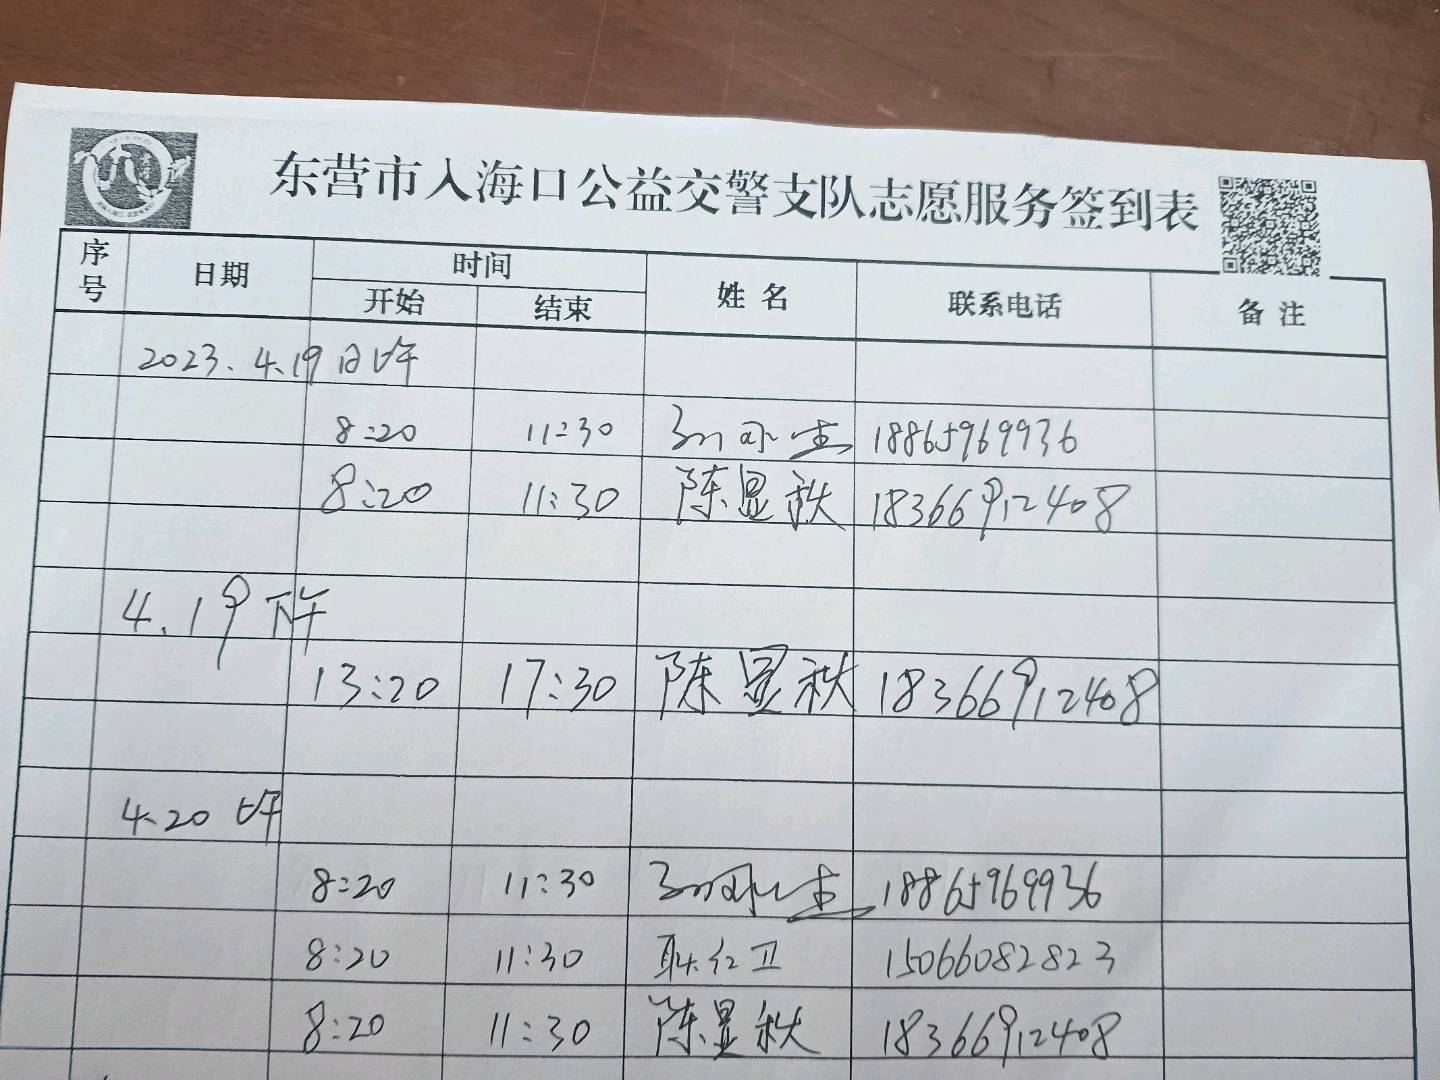 东营市入海口公益交警支队志愿服务签到表
序号 日期 时间 姓名 联系电话 备注
开始 结束
2023.4.19日上午
8:20 11:30 18865969936
8:20 11:30 陈显秋 18366912408
4.19下午
13:20 17:30 陈显秋 18366912408
4.20 上午
8:20 11:30 18865969936
8:20 11:30 耿红卫 15066082823
8:20 11:30 陈显秋 18366912408